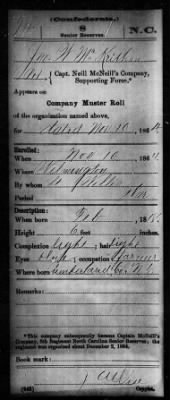 (Confederate.)
8
Senior Reserves.
N.C.
Jno. W. McKeithan
Pvt, Capt. Neill McNeill's Company,
Supporting Force.*
Appears on
Company Muster Roll
of the organization named above,
for dated Nov 10, 1864
Enrolled:
When Nov 10, 1864
Where Wilmington
By whom
Period
Description:
When
Height 6 feet
inches
Complexion light; hair light
Eyes blue; occupation Farmer
Where born Cumberland Co. N.C.
Remarks:
*This company subsequently became Captain McNeill's
Company, 8th Regiment North Carolina Senior Reserves; the
regiment was organized about December 2, 1864.
Book mark:
(642)
Copyist.